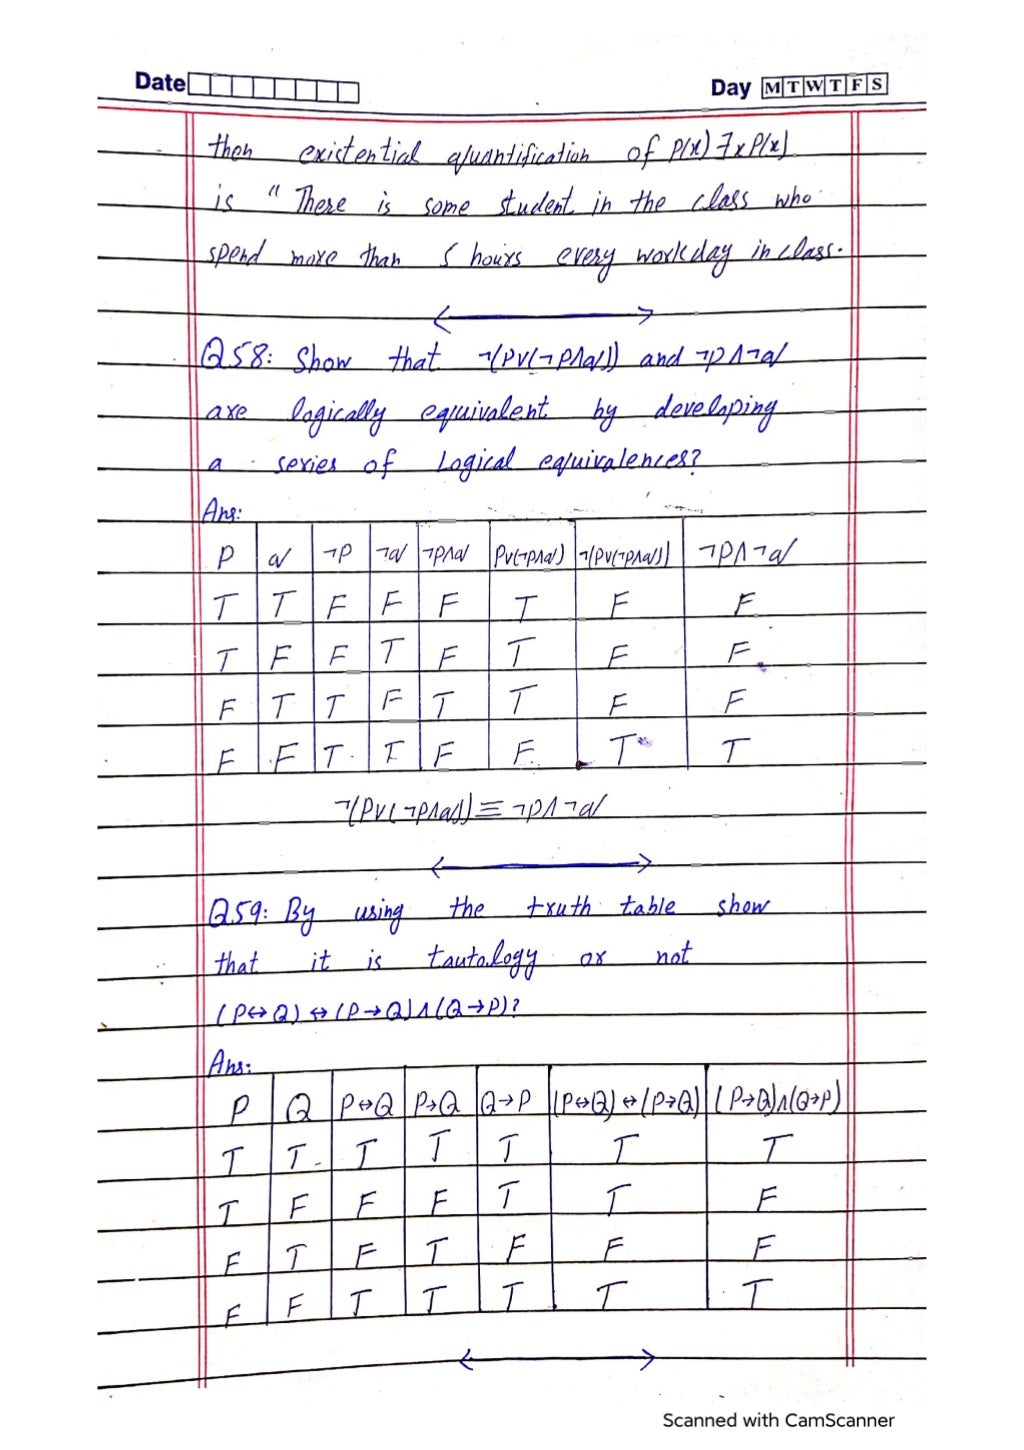 Date Day M T W T F S
then existential quantification of P(x) ∃xP(x)
is "There is some student in the class who
spend more than 5 hours every workday in class.
Q58: Show that ¬(P∨(¬P∧q)) and ¬P∧¬q
are logically equivalent by developing
a series of Logical equivalences?
Ans:
P q ¬P ¬q ¬P∧q P∨(¬P∧q) ¬(P∨(¬P∧q)) ¬P∧¬q
T T F F F T F F
T F F T F T F F
F T T F T T F F
F F T T F F T T
¬(P∨(¬P∧q)) ≡ ¬P∧¬q
Q59: By using the truth table show
that it is tautology or not
(P↔Q) ↔ (P→Q)∧(Q→P)?
Ans:
P Q P↔Q P→Q Q→P (P↔Q)↔(P→Q) (P→Q)∧(Q→P)
T T T T T T T
T F F F T T F
F T F T F F F
F F T T T T T
Scanned with CamScanner